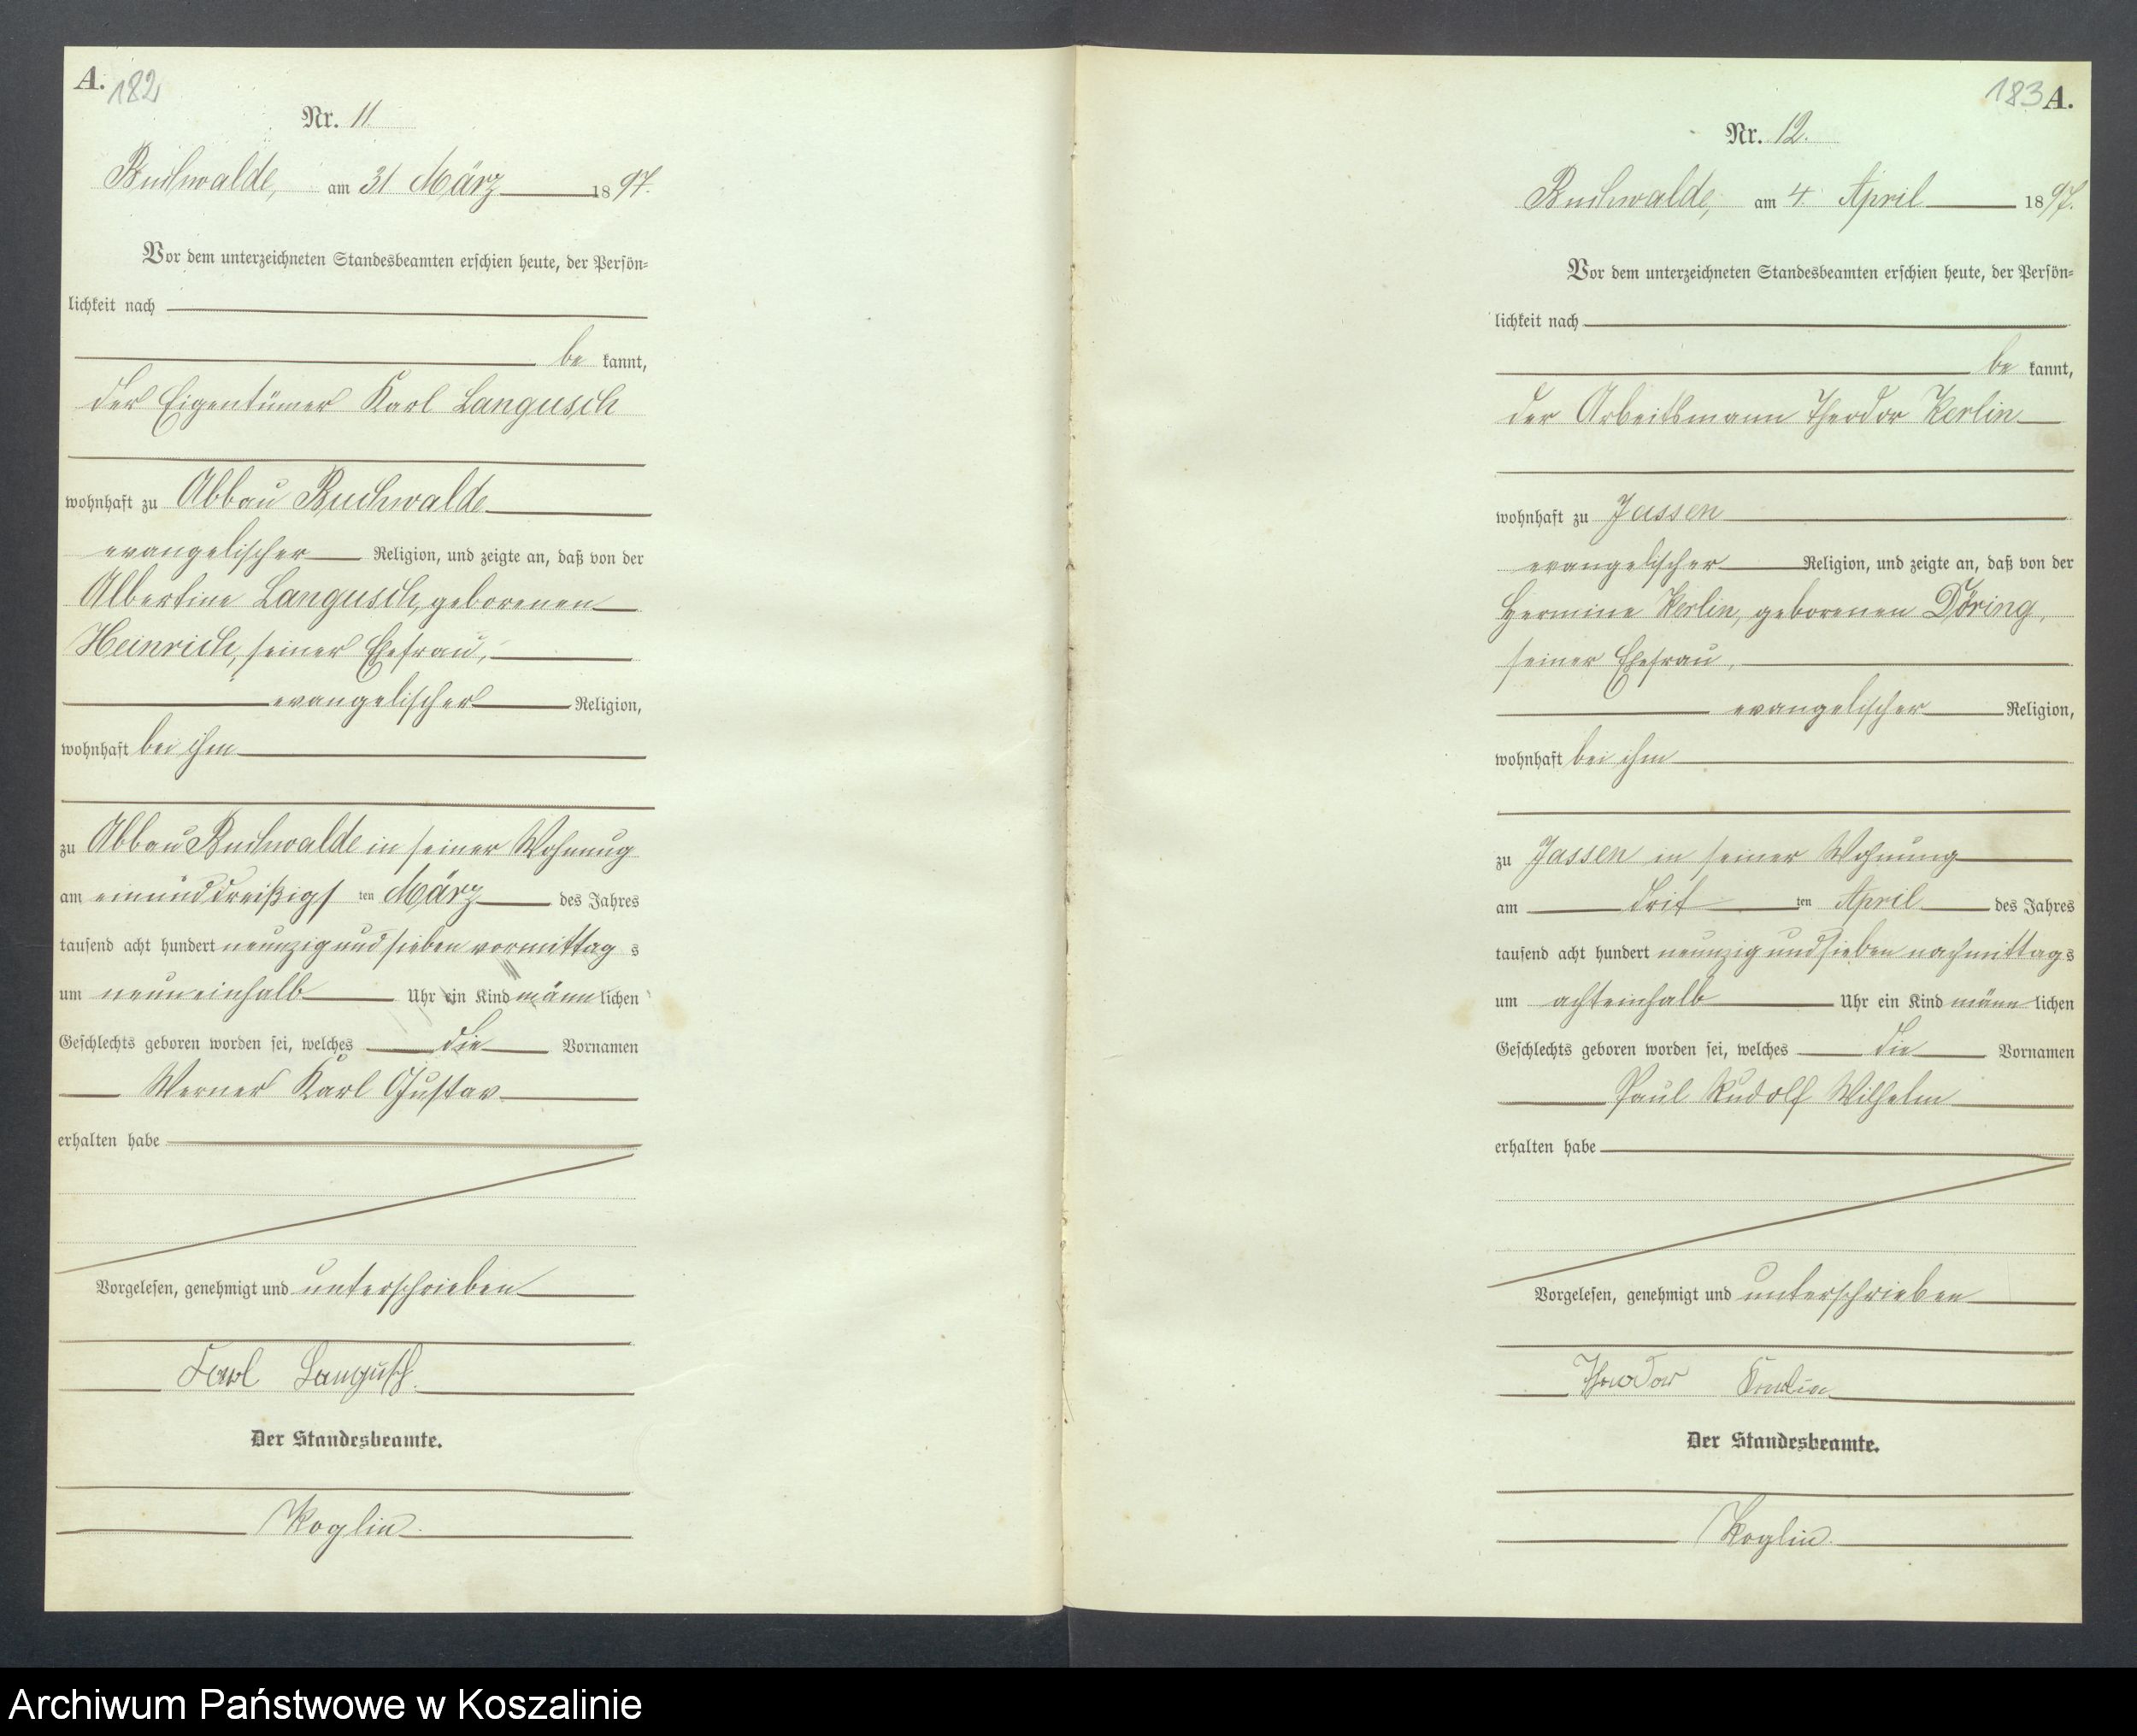 A. 182
Nr. 11
Buchwalde, am 31 März 1897.
Vor dem unterzeichneten Standesbeamten erschien heute, der Persön=
lichkeit nach
be kannt,
der Eigentümer Karl Langusch
wohnhaft zu Abbau Buchwalde
evangelischer Religion, und zeigte an, daß von der
Albertine Langusch, geborenen
Heinrich, seiner Ehefrau,
evangelischer Religion,
wohnhaft bei ihm
zu Abbau Buchwalde in seiner Wohnung
am einunddreißigs ten März des Jahres
tausend acht hundert neunzig und sieben vormittag s
um neuneinhalb Uhr ein Kind männ lichen
Geschlechts geboren worden sei, welches die Vornamen
Werner Karl Gustav
erhalten habe
Vorgelesen, genehmigt und unterschrieben
Karl Langusch.
Der Standesbeamte.
Koglin.
183 A.
Nr. 12.
Buchwalde, am 4 April 1897.
Vor dem unterzeichneten Standesbeamten erschien heute, der Persön=
lichkeit nach
be kannt,
der Arbeitsmann Theodor Kerlin
wohnhaft zu Jassen
evangelischer Religion, und zeigte an, daß von der
Hermine Kerlin, geborenen Döring,
seiner Ehefrau,
evangelischer Religion,
wohnhaft bei ihm
zu Jassen in seiner Wohnung
am drit ten April des Jahres
tausend acht hundert neunzig und sieben nachmittag s
um achteinhalb Uhr ein Kind männ lichen
Geschlechts geboren worden sei, welches die Vornamen
Paul Rudolf Wilhelm
erhalten habe
Vorgelesen, genehmigt und unterschrieben
Theodor Kerlin
Der Standesbeamte.
Koglin.
Archiwum Państwowe w Koszalinie